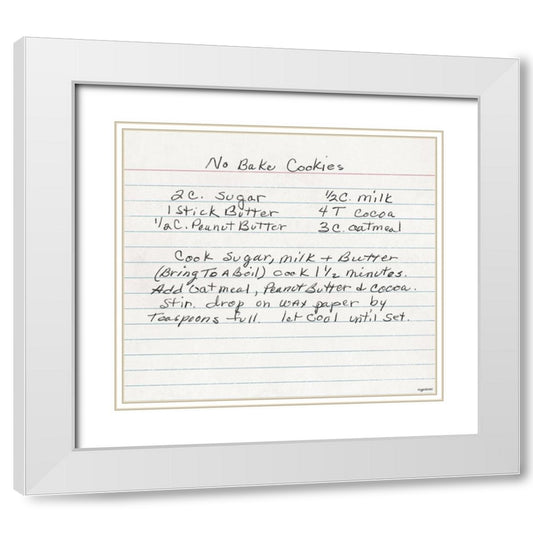 No Bake Cookies
2 C. Sugar 1/2 C. milk
1 Stick Butter 4 T cocoa
1/2 C. Peanut Butter 3 C. oatmeal
Cook Sugar, milk + Butter
(Bring To A Boil) cook 1 1/2 minutes.
Add Oatmeal, Peanut Butter & cocoa.
Stir. drop on wax paper by
Teaspoons full. let Cool until set.